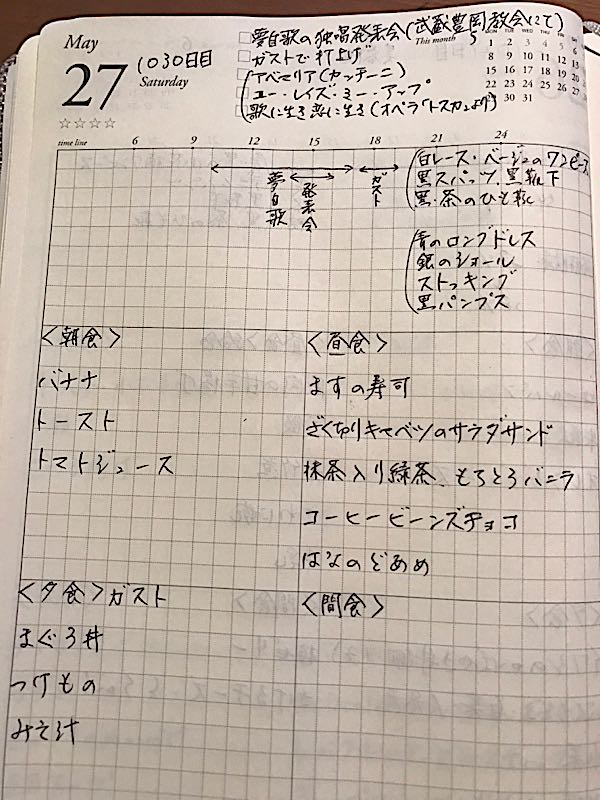 May
27
1030日目
Saturday
☆☆☆☆
□夢自歌の独唱発表会(武蔵豊岡教会にて)
□ガストで打上げ
This month 5
MON TUE WED THU FRI SAT
1 2 3 4 5 6
8 9 10 11 12 13
15 16 17 18 19 20
22 23 24 25 26 27
30 31
□アベマリア(カッチーニ)
□ユー・レイズ・ミー・アップ
□歌に生き恋に生き(オペラ「トスカ」より)
time line 6 9 12 15 18 21 24
夢自歌
発表会
ガスト
白レース・ベージュのワンピース
黒スパッツ、黒靴下
黒・茶のひも靴
青のロングドレス
銀のショール
ストッキング
黒パンプス
<朝食>
バナナ
トースト
トマトジュース
<昼食>
ますの寿司
ざく切りキャベツのサラダサンド
抹茶入り緑茶、もろとろバニラ
コーヒービーンズチョコ
はなのどあめ
<夕食>ガスト
まぐろ丼
つけもの
みそ汁
<間食>